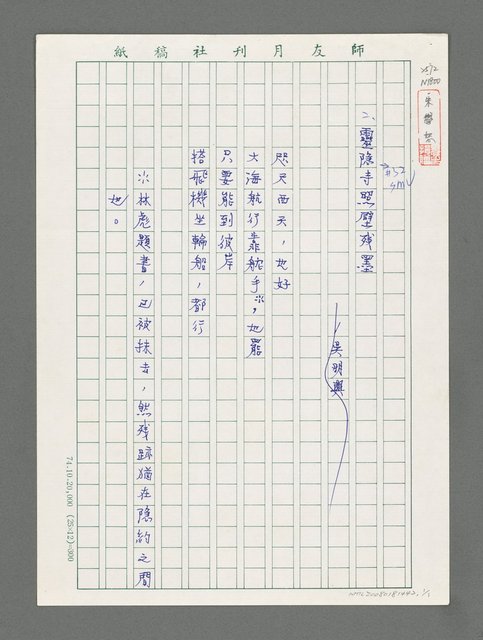 師友月刊社稿紙
二、靈隱寺照壁残墨
吳明興
咫尺西天，也好
大海航行靠舵手※，也罷
只要能到彼岸
搭飛機坐輪船，都行
※林彪題書，已被抹去，然残跡猶在隐約之間
也。
74.10.20,000 (25×12)=300
NML20080181442, 1/1